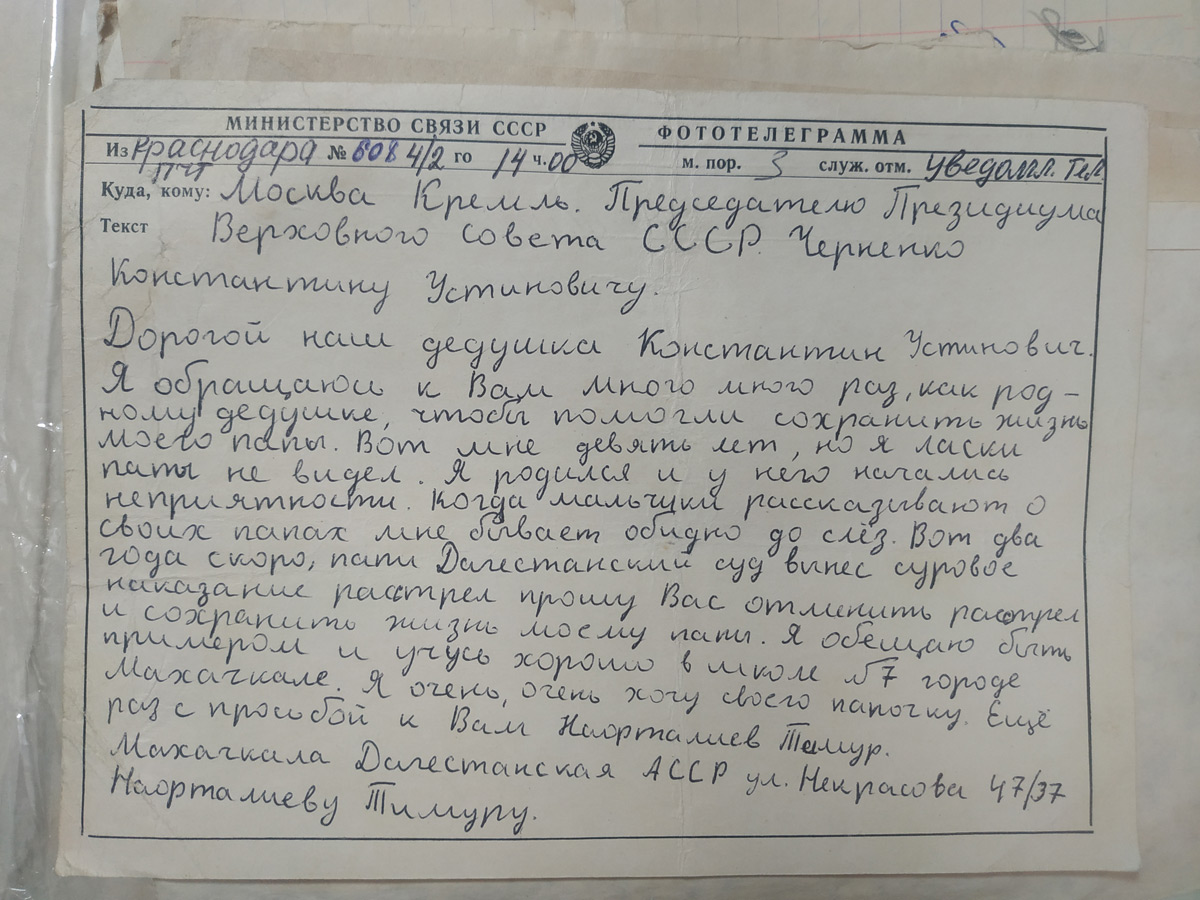 МИНИСТЕРСТВО СВЯЗИ СССР ФОТОТЕЛЕГРАММА
Из Краснодара № 608 4/2 го 14 ч. 00 м. пор. 3 служ. отм. Уведомл. Тел
Куда, кому: Москва Кремль. Председателю Президиума
Текст Верховного совета СССР. Черненко
Константину Устиновичу.
Дорогой наш дедушка Константин Устинович.
Я обращаюсь к Вам много много раз, как род-
ному дедушке, чтобы помогли сохранить жизнь
моего папы. Вот мне девять лет, но я ласки
папы не видел. Я родился и у него начались
неприятности. Когда мальчики рассказывают о
своих папах мне бывает обидно до слёз. Вот два
года скоро, папи Дагестанский суд вынес суровое
наказание расстрел прошу Вас отменить расстрел
и сохранить жизнь моему папы. Я обещаю быть
примером и учусь хорошо в школе №7 городе
Махачкале. Я очень, очень хочу своего папочку. Ещё
раз с просьбой к Вам Наорталиев Тимур.
Махачкала Дагестанская АССР ул. Некрасова 47/37
Наорталиеву Тимуру.